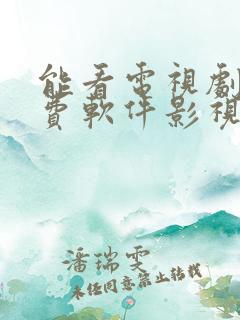 能看電視劇
費軟件影視
潘瑞雯
未任同意禁止转载